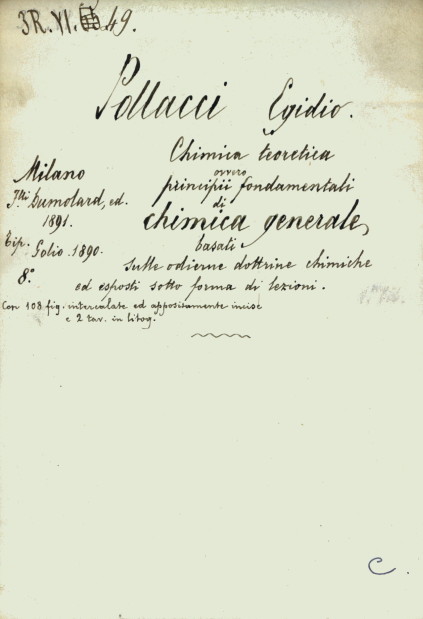 3R.VI. 49.
Pollacci Egidio.
Chimica teoretica
ovvero
principii fondamentali
di
chimica generale
basati
sulle odierne dottrine chimiche
ed esposti sotto forma di lezioni.
Milano
F.lli Dumolard, ed.
1891.
Tip. Golio. 1890.
8.°
Con 108 fig. intercalate ed appositamente incise
e 2 tav. in litog.
C.